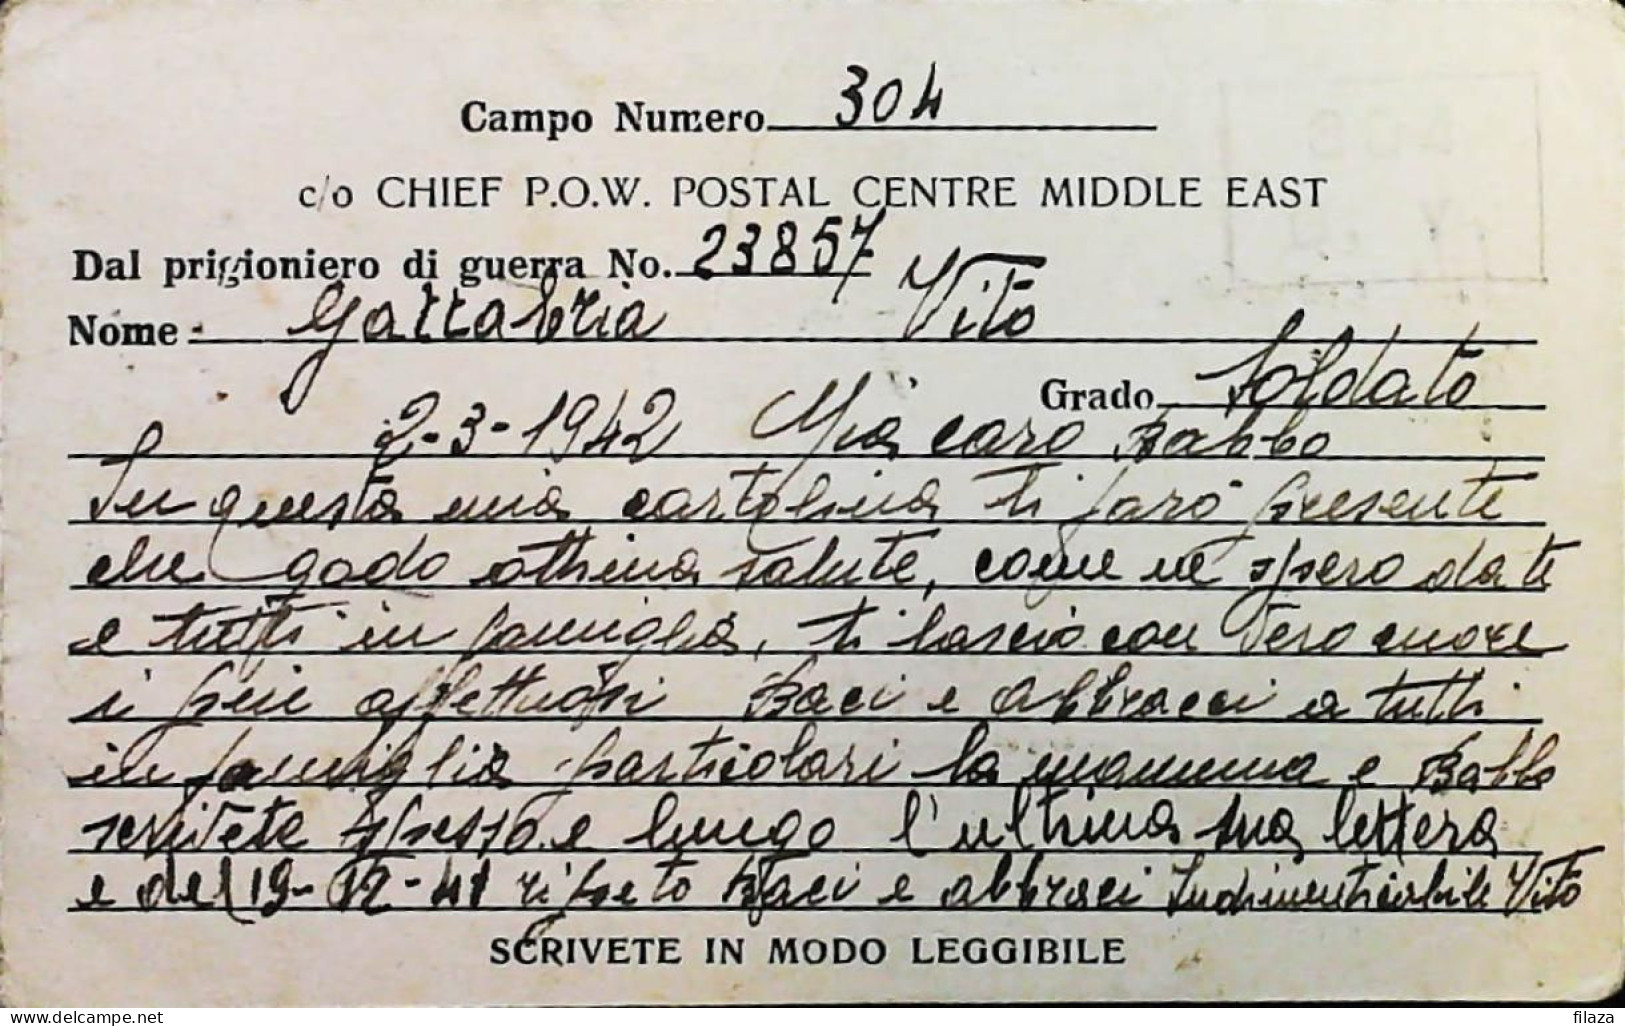 Campo Numero 304
c/o CHIEF P.O.W. POSTAL CENTRE MIDDLE EAST
Dal prigioniero di guerra No. 23857
Nome - Gattabria Vito
Grado Soldato
2-3-1942 Mio caro Babbo
In questa mia cartolina ti farò presente
che godo ottima salute, come ne spero da te
e tutti in famiglia, ti lascio con vero cuore
i più affettuosi Baci e abbracci a tutti
in famiglia particolari la mamma e Babbo
scrivete spesso e lungo l'ultima sua lettera
e del 19-12-41 ripeto Baci e abbracci Indimenticabile Vito
SCRIVETE IN MODO LEGGIBILE
www.delcampe.net
filaza